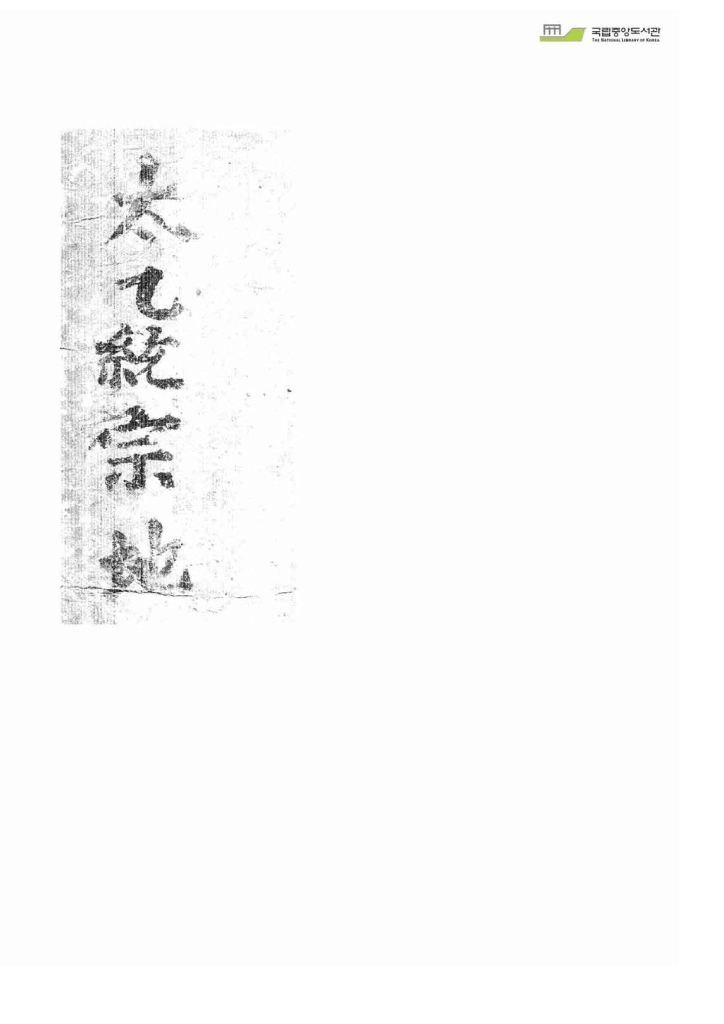 국립중앙도서관
THE NATIONAL LIBRARY OF KOREA
太乙統宗 地